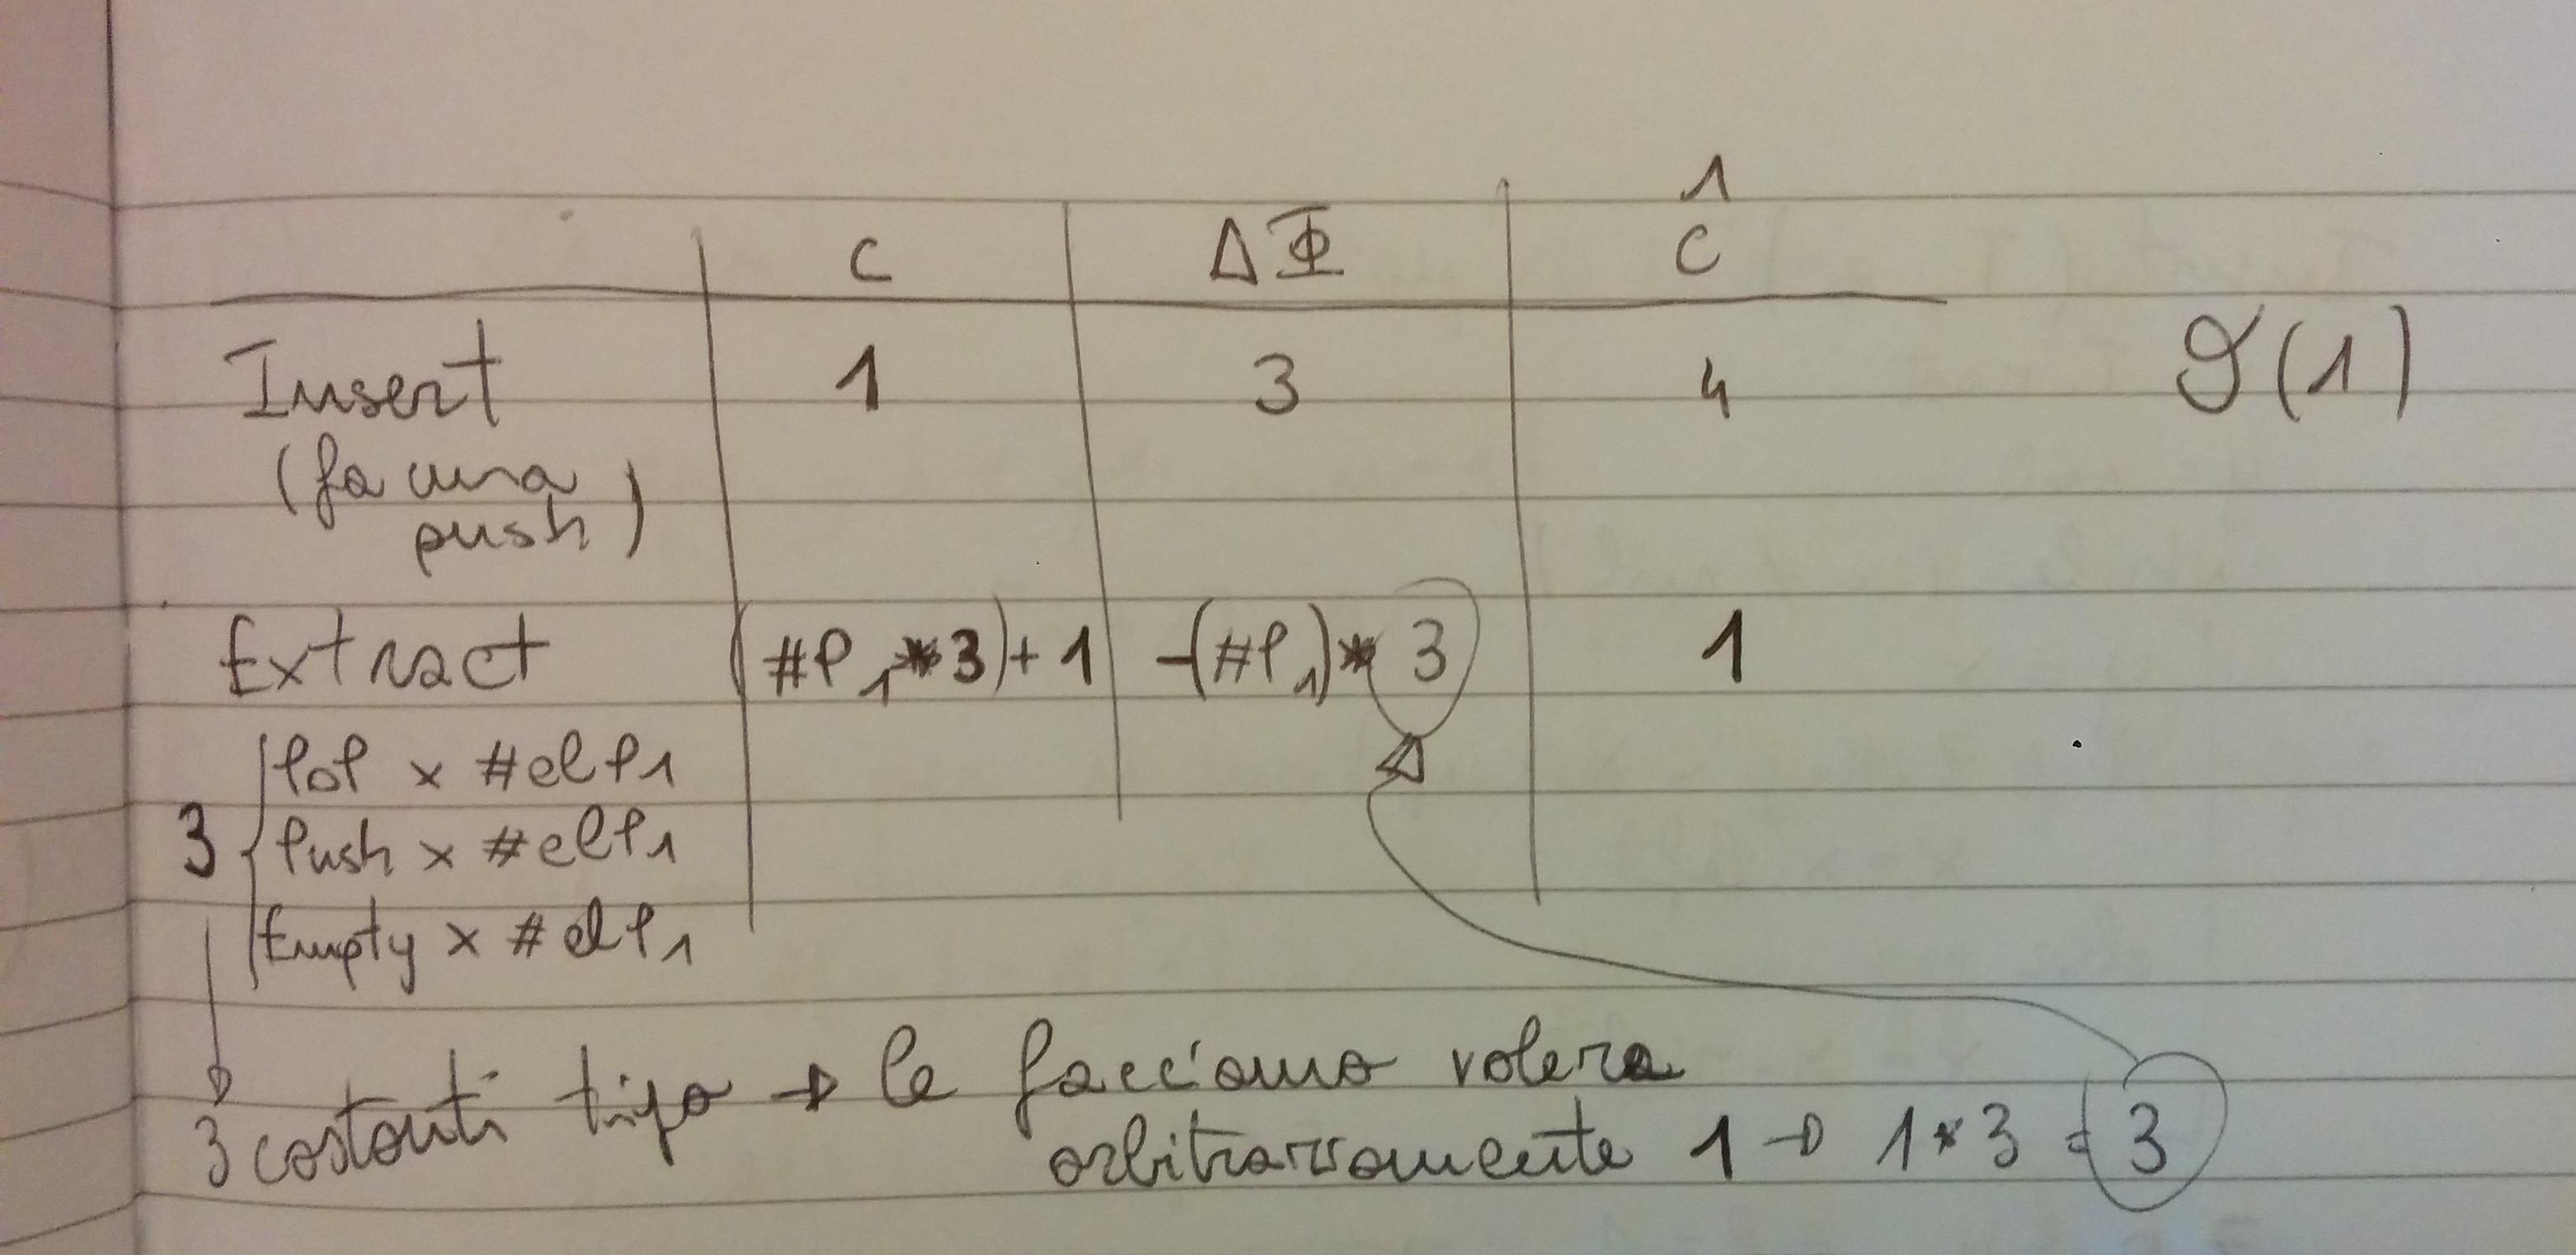 C ΔΦ Ĉ
Insert 1 3 4 O(1)
(fa una
push)
Extract (#P₁*3)+1 -(#P₁)*3 1
Pop x #elP1
3 { Push x #elP1
Empty x #elP1
3 costanti tipo → le facciamo valere
arbitrariamente 1 → 1*3 = 3